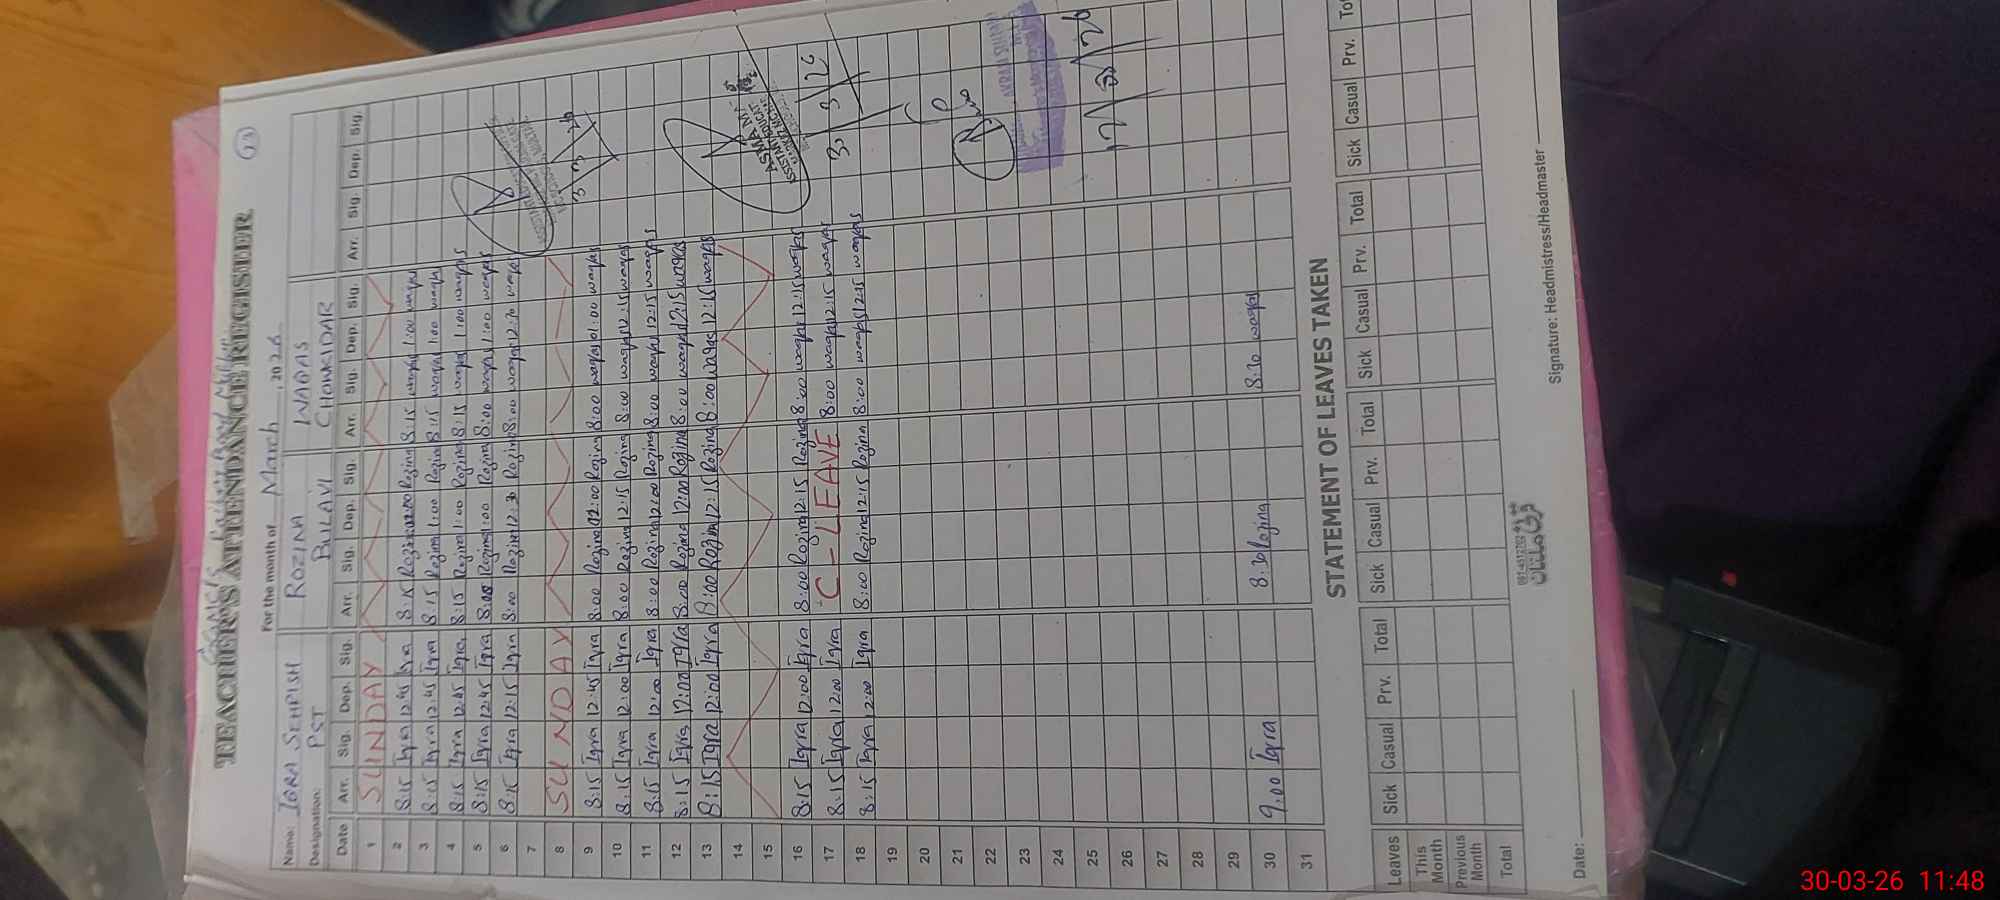 23
TEACHER'S ATTENDANCE REGISTER
For the month of March, 2026
Name: IQRA SEHRISH ROZINA WAQAS
Designation: PST BULAVI CHOWKIDAR
Date Arr. Sig. Dep. Sig. Arr. Sig. Dep. Sig. Arr. Sig. Dep. Sig. Arr. Sig. Dep. Sig.
1 SUNDAY
2 8:15 Iqra 12:45 Iqra 8:15 Rozina Rozina 8:15 waqas 1:00 waqas
3 8:15 Iqra 12:45 Iqra 8:15 Rozina 1:00 Rozina 8:15 waqas 1:00 waqas
4 8:15 Iqra 12:45 Iqra 8:15 Rozina 1:00 Rozina 8:15 waqas 1:00 waqas
5 8:15 Iqra 12:45 Iqra 8:00 Rozina 1:00 Rozina 8:00 waqas 1:00 waqas
6 8:15 Iqra 12:15 Iqra 8:00 Rozina Rozina 8:00 waqas 12:30 waqas
7
8 SUNDAY
9 8:15 Iqra 12:45 Iqra 8:00 Rozina Rozina 8:00 waqas 01:00 waqas
10 8:15 Iqra 12:00 Iqra 8:00 Rozina 12:15 Rozina 8:00 waqas 12:15 waqas
11 8:15 Iqra 12:00 Iqra 8:00 Rozina 12:00 Rozina 8:00 waqas 12:15 waqas
12 8:15 Iqra 12:00 Iqra 8:00 Rozina 12:00 Rozina 8:00 waqas 12:15 waqas
13 8:15 Iqra 12:00 Iqra 8:00 Rozina 12:15 Rozina 8:00 waqas 12:15 waqas
14
15
16 8:15 Iqra 12:00 Iqra 8:00 Rozina 12:15 Rozina 8:00 waqas 12:15 waqas
17 8:15 Iqra 12:00 Iqra C-LEAVE 8:00 waqas 12:15 waqas
18 8:15 Iqra 12:00 Iqra 8:00 Rozina 12:15 Rozina 8:00 waqas 12:15 waqas
19
20
21
22
23
24
25
26
27
28
29
30 9:00 Iqra 8:30 Rozina 8:30 waqas
31
ASMA
STATEMENT OF LEAVES TAKEN
Leaves Sick Casual Prv. Total Sick Casual Prv. Total Sick Casual Prv. Total Sick Casual Prv.
This Month
Previous Month
Total
Date: Signature: Headmistress/Headmaster
30-03-26 11:48